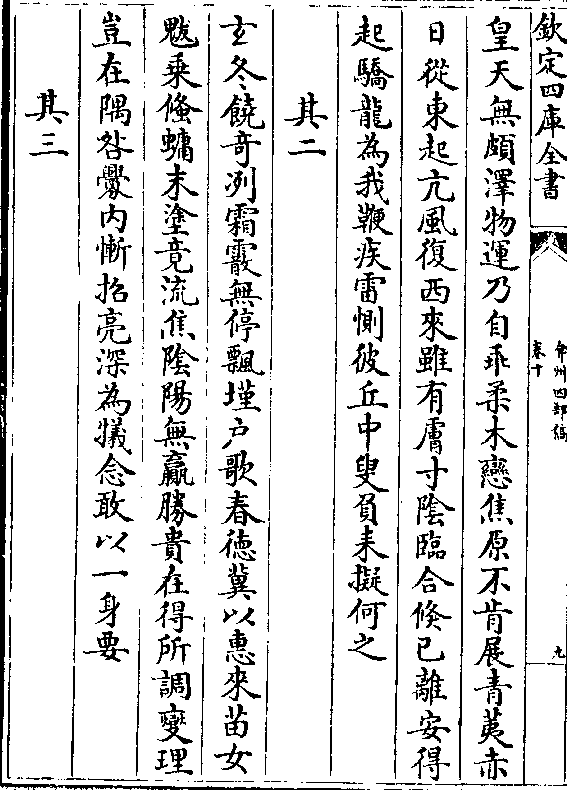 欽定四庫全書
弇州四部稿
卷十
九
皇天無頗澤物運乃自乖柔木戀焦原不肯展青荑赤
日從東起亢風復西來雖有膚寸陰臨合倐已離安得
起驕龍為我鞭疾雷惻彼丘中叟負耒擬何之
其二
玄冬饒竒冽霜霰無停飄墐户歌春徳冀以惠來苗女
魃乗倐蟰末塗竟流焦陰陽無贏勝貴在得所調變理
豈在隅咎釁内慚招亮深為犧念敢以一身要
其三